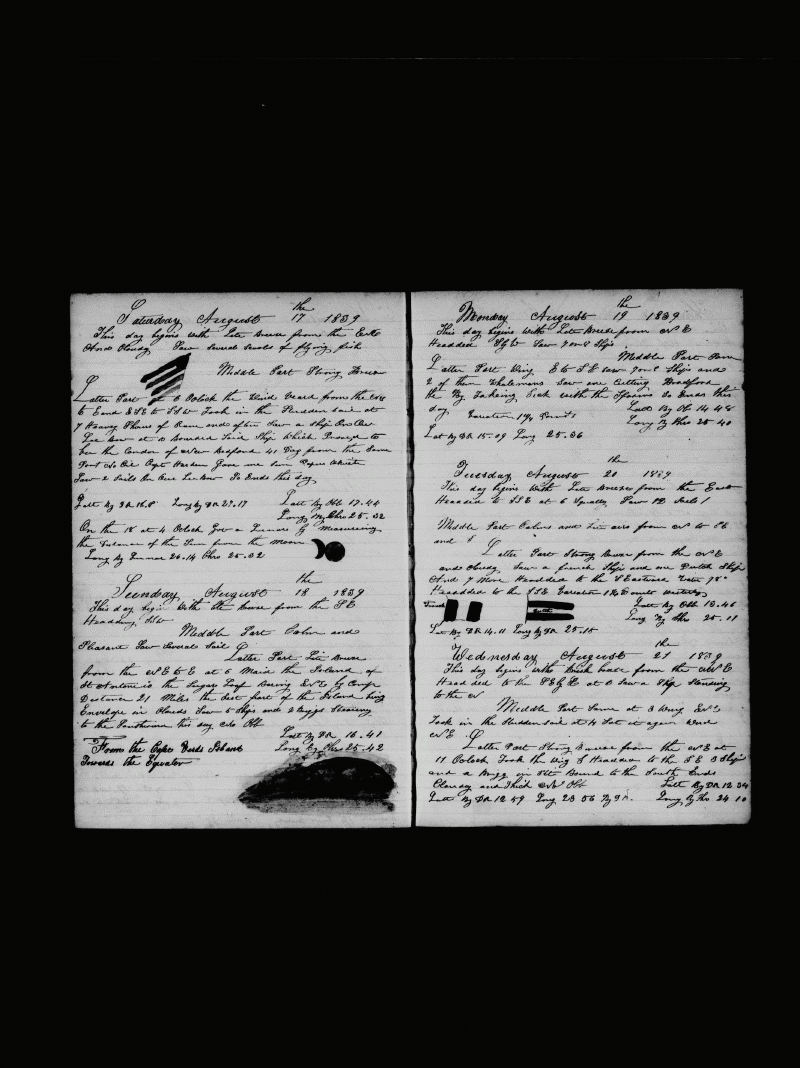 Saturday August the 17 1839
This day begins with Lite Breeze from the
And Cloudy Saw Several Scools of flying fish
Middle Part Strong Breeze
Latter Part at 6 Oclock the Wind Veard from the
to E and ESE to SSW Took in the Studden sail at
7 Heavy Showrs of Rain and often Saw a Ship On Our
Lee bow at 10 Bourded Said Ship Which Proved to
bee the Condor of New Bedford 41 Day from the Same
Port No Oil Capt Gave me Some
Saw 2 Sails On Our Lee bow So Ends this day
Latt By DR 16.8 Long by DR 27.17 Latt By Obb 17.44
Long By Chro 25.32
On the 18 at 4 Oclock Got a Lunar by Measureing
the Distance of the Sun from the Moon
Long by Lunar 24.14 Chro 25.32
Sunday August the 18 1839
This day begins With Breeze from the SE
Heading SW
Middle Part Calm and
Pleasant Saw Several Sail
Latter Part Lite Breeze
from the NE to E at 6 Maid the Island of
St Antonio the Sugar Loaf Baring by Comps
Distance 21 Miles the most part of the Island being
Envelope in Clouds Saw 5 Ships and 2 Briggs Stearing
to the Southward this day No Obb
Latt By DR 16.41
From the Cape Verds Islans Long by Chro 25.42
Towards the Equator
Monday August the 19 1839
This day begins With Lite Breeze from NE
Headded Saw 7 or 8 Ships
Middle Part Same
Latter Part Wing E to SE saw 7 or 8 Ships and
2 of them Whalemans Saw one Cutting Bradford
the By Takeing Sick with the So Ends this
day. Variation 1¾ Points Latt By Ob 14 48
Long By Chro 25 40
Lat By DR 15.09 Long 25.36
Tuesday August the 20 1839
This day begins With Lite Breeze from the East
Headded to SSE at 6 Squally, Saw 12 Sails
Middle Part Calms and Lite airs from N to SE
and S
Latter Part Strong Breeze from the NE
and Cloudy Saw a french Ship and one Dutch Ship
And 7 More Headded to the S Eastward Water 78°
Headded to the SSE Variation 1¾ Points westerly
French Dutch Latt By Obb 13.46
Long By Chro 25.11
Lat By DR 14.11 Long by DR 25.18
Wednesday August the 21 1839
This day begins with Brisk breeze from the NE
Headded to the at 6 Saw a Ship Standing
to the N
Middle Part Same at 3 Wing
Took in the Studdensail at 4 Set it again Wind
NE
Latter Part Strong Breeze from the NE at
11 Oclock Took the Wing S Headded to the SE 3 Ship
and a Brigg in Site Bound to the South Ends
Cloudy and Thick No Obb Latt By DR 12 34
Latt By DR 12 59 Long 23 56 By DR. Long By Chro 24 10